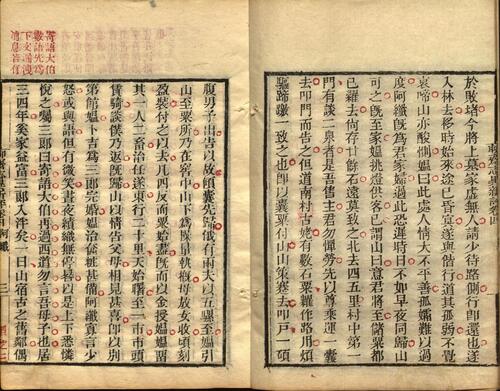 於敗堵今將上墓家虛無人請少待路側行即還也遂
入林去移時始來途已昏冥遂與偕行道其孤弱不覺
哀啼山亦酸惻媼曰此處人情大不平善孤孀難以過
度阿纖既為君家婦過此恐遲時日不如早夜同歸山
可之既至家媼挑燈供客已謂山曰意君將至儲粟都
已糶去尚存廿餘石遠莫致之北去四五里村中第一
門有談二泉者是吾售主君勿憚勞先以尊乘運一囊
去叩門而告之但道南村古姥有數石粟糶作路用煩
驅蹄躈一致之也即以囊粟付山山策蹇去叩戶一碩
腹男子出告以故傾囊先歸俄有兩夫以五騾至媼引
山至粟所乃在窖中山下為操量執概母放女收頃刻
盈裝付之以去凡四反而粟始盡既而以金授媼媼留
其一人二畜治任遂東行二十里天始曙至一市市頭
賃騎談僕乃返既歸山以情告父母相見甚喜即以別
第館媼卜吉為三郎完婚媼治奩妝甚備阿纖寡言少
怒或與語但有微笑晝夜績織無停晷以是上下悉憐
悅之囑三郎曰寄語大伯再過西道勿言吾母子也居
三四年奚家益富三郎入泮矣一日山宿古之舊鄰偶
寄語大伯
數語先為
下文漏洩
消息
阿纖
三